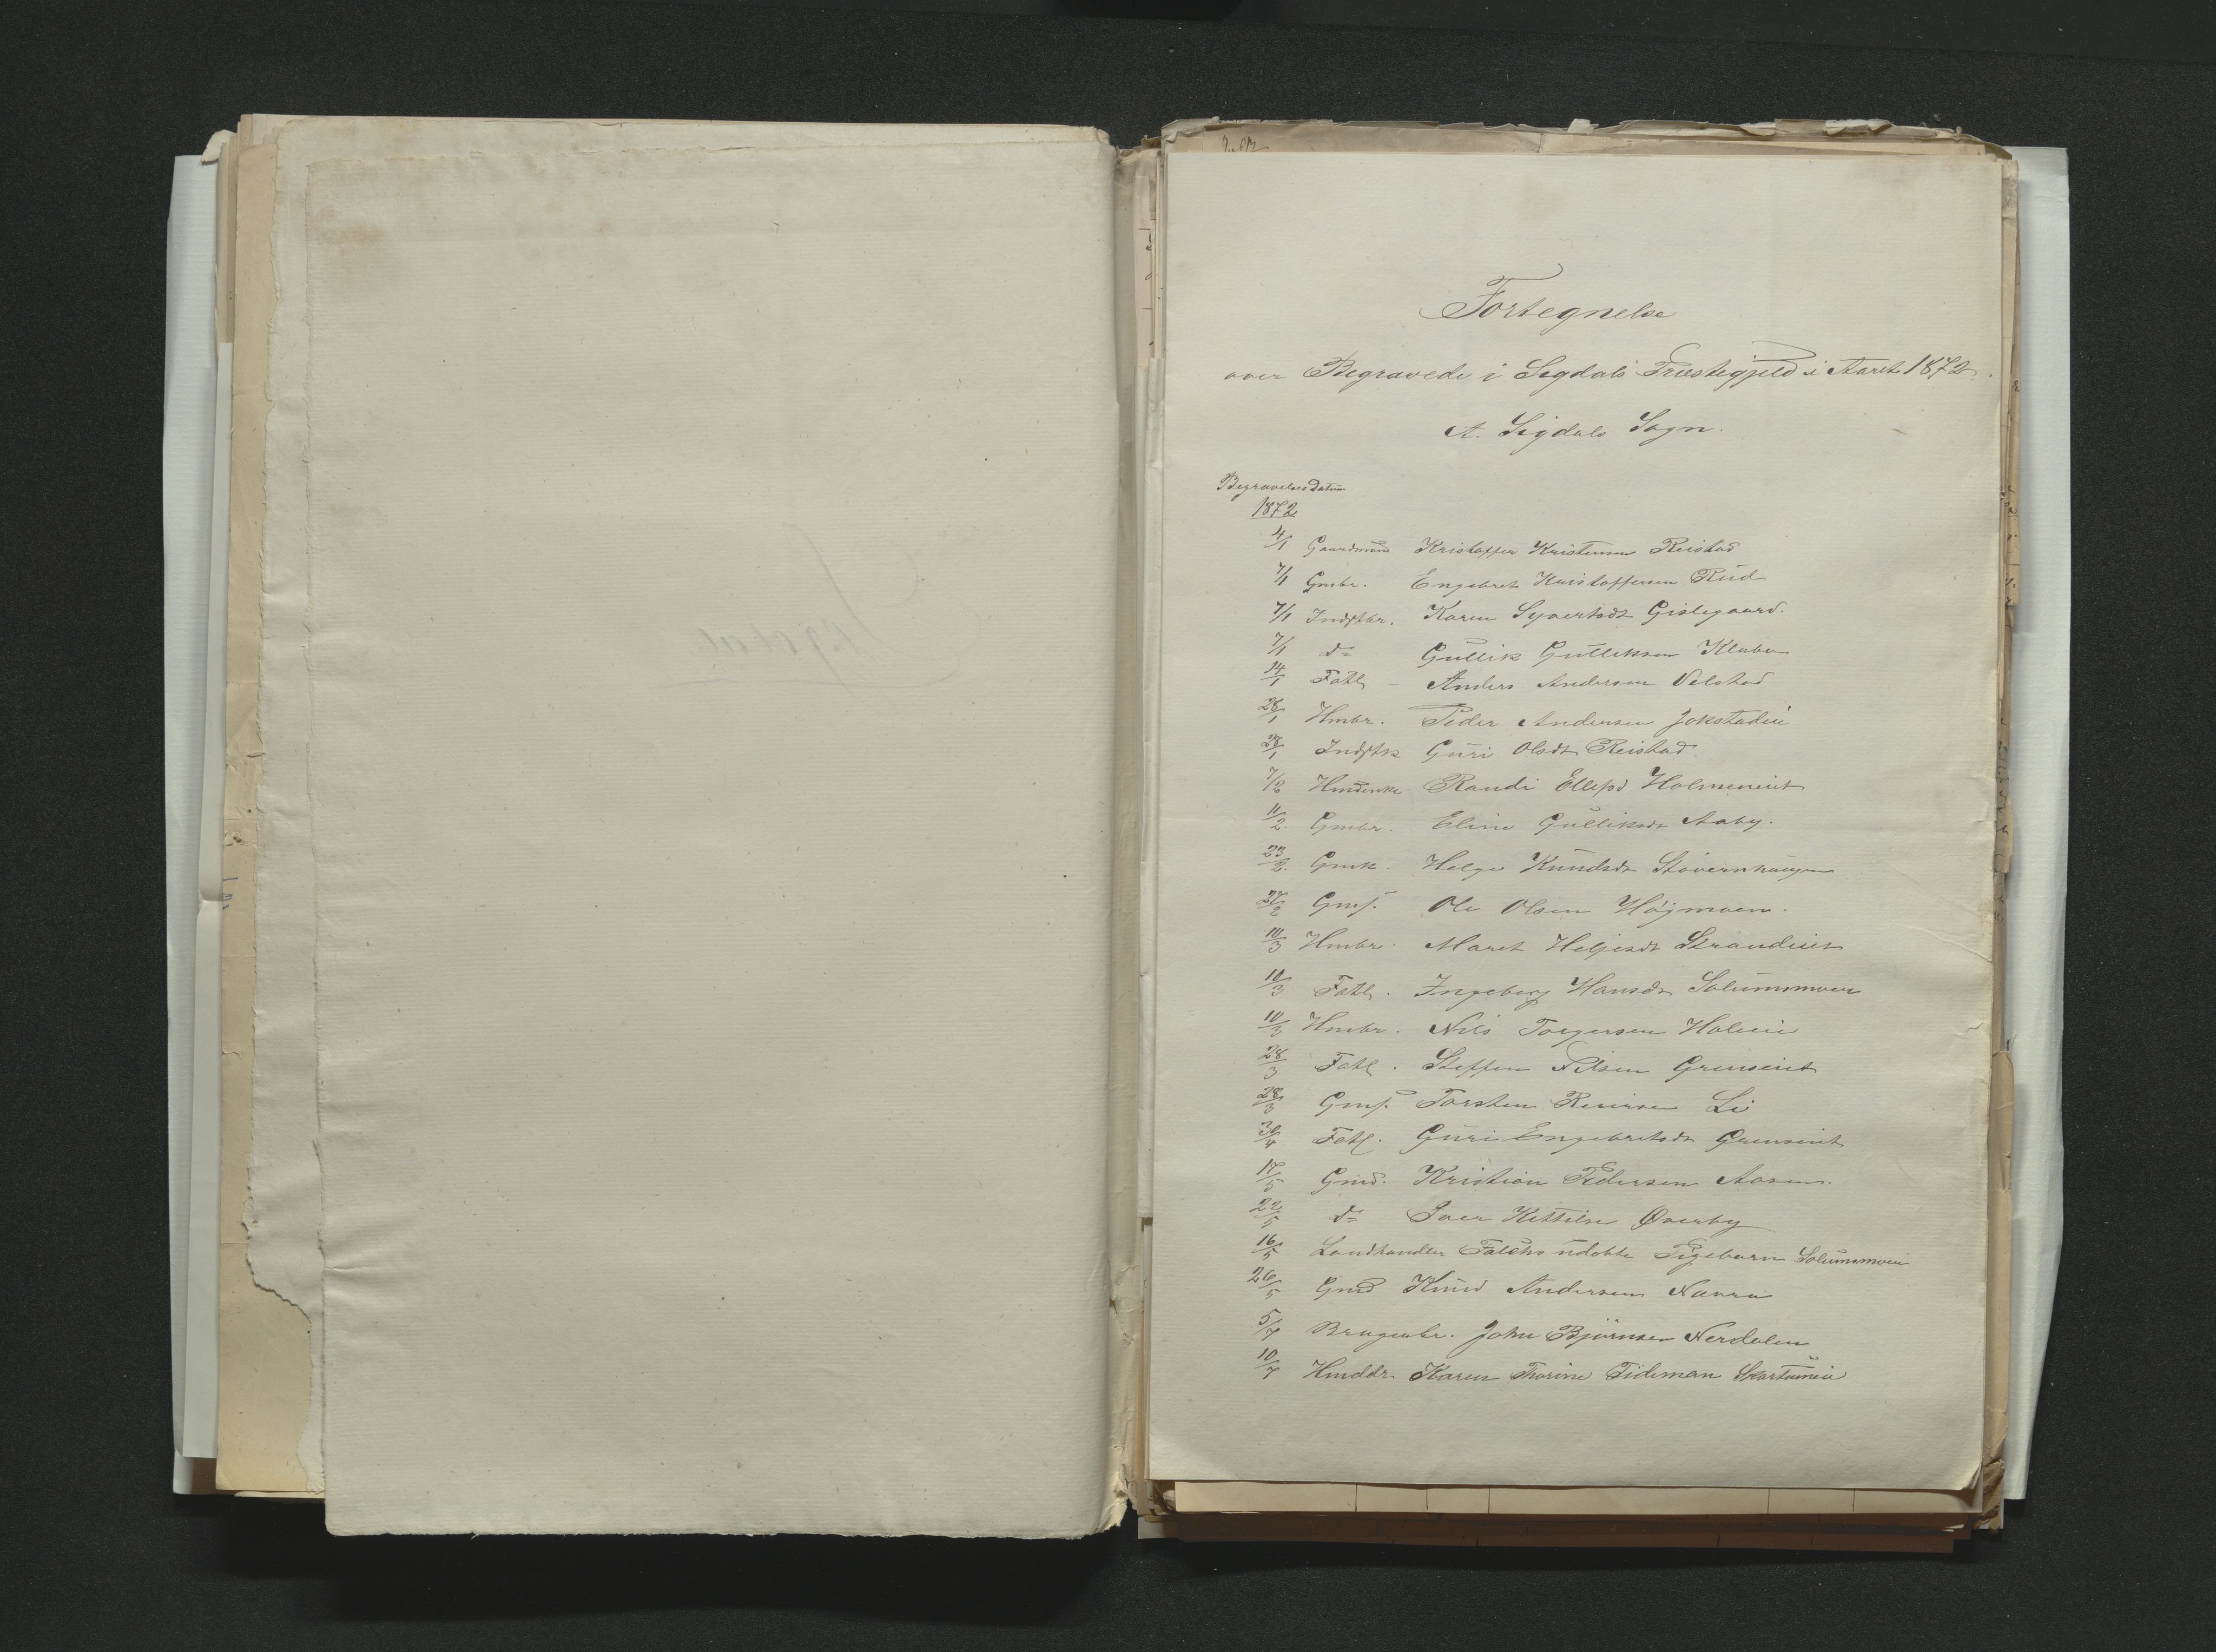 Fortegnelse
over Begravede i Sigdals Præstegjeld i Aaret 1872.
A. Sigdals Sogn.
Begravelses Datum
1872
4/1 Gaardmand Kristoffer Kristensen Reistad
7/1 Gmbr. Engebret Kristoffersen Rud
7/1 Indstbr. Karen Syvertsdt Gislegaard.
7/1 do Gullik Gulliksen
14/1 Fattl Anders Andersen Velstad
28/1 Hmbr. Peder Andersen Jokstadeie
28/1 Indstk Guri Olsdt Reistad
7/2 Hmdenke Randi Holmeneiet
11/2. Gmbr. Eline Gulliksdt Aaby.
23/2. Gmk. Helge Knudsdt
27/2 Gmf. Ole Olsen Højmoen.
10/3 Hmbr. Maret Heljesdt Strandeiet
10/3 Fattl. Ingeborg Hansdt Solumsmoen
10/3 Hmbr. Nils Torgersen
28/3 Fattl. Steffen Nilsen Grenseiet
28/3 Gmf. Torsten Li
30/4 Fattl. Guri Engebretsdt Grenseiet
17/5 Gmd. Kristian Pedersen Aasen.
22/5 do Iver Kittilsen Øverby
16/5 Landhandler Falchs udøbte Pigebarn Solumsmoen
26/5 Gmd Knud Andersen Narra
5/7 Brugmbr. John Bjørnsen Nerdalen
10/7 Hmddr. Karen Thorine Tideman Skartumeie